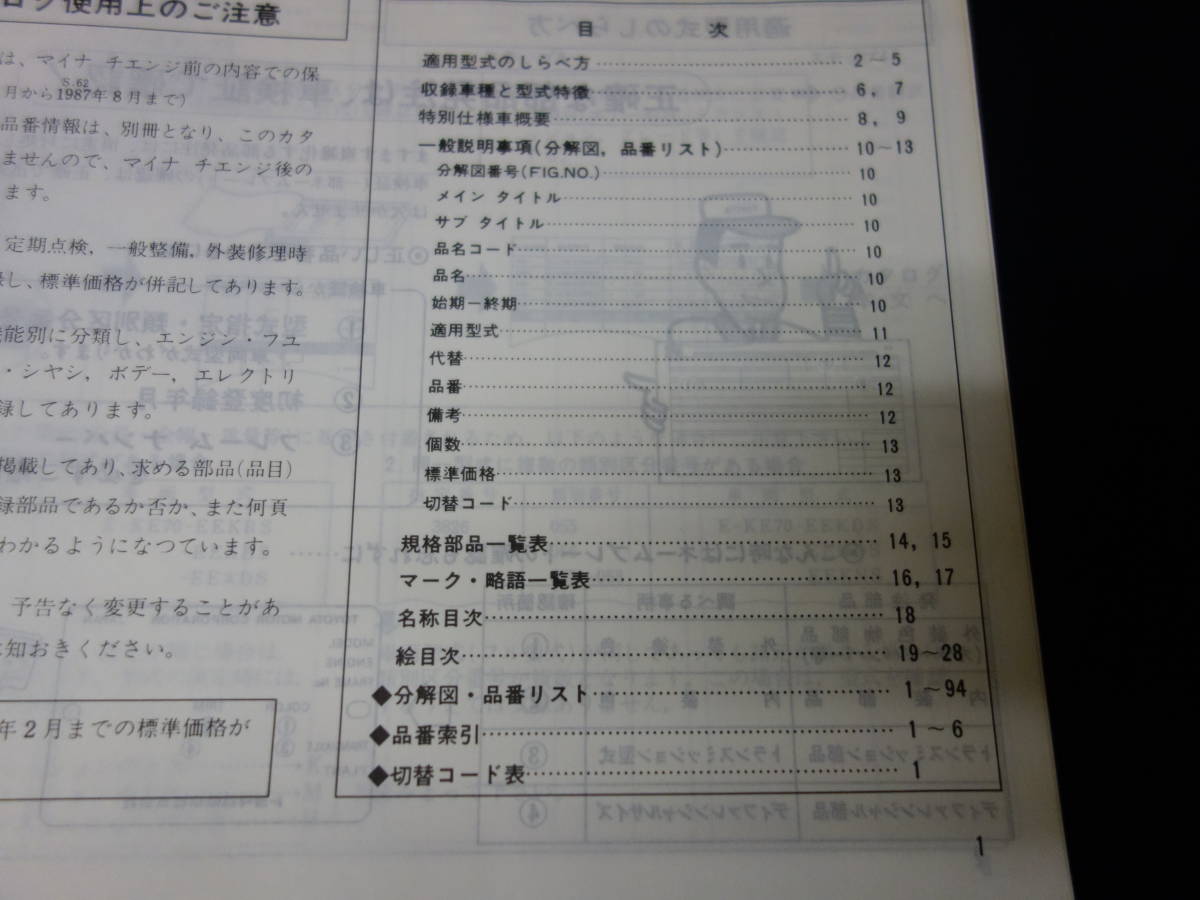 ログ使用上のご注意
は、マイナ チエンジ前の内容での保
S.62
月から1987年8月まで)
品番情報は、別冊となり、このカタ
ませんので、マイナ チエンジ後の
ます。
定期点検,一般整備,外装修理時
し、標準価格が併記してあります。
能別に分類し、エンジン・フユ
・シヤシ,ボデー,エレクトリ
録してあります。
掲載してあり、求める部品(品目)
録部品であるか否か、また何頁
わかるようになつています。
予告なく変更することがあ
知おきください。
年2月までの標準価格が
目 次
適用型式のしらべ方 2~5
収録車種と型式特徴 6, 7
特別仕様車概要 8, 9
一般説明事項(分解図,品番リスト) 10~13
分解図番号(FIG.NO.) 10
メイン タイトル 10
サブ タイトル 10
品名コード 10
品名 10
始期ー終期 10
適用型式 11
代替 12
品番 12
備考 12
個数 13
標準価格 13
切替コード 13
規格部品一覧表 14, 15
マーク・略語一覧表 16, 17
名称目次 18
絵目次 19~28
◆分解図・品番リスト 1~94
◆品番索引 1~6
◆切替コード表 1
1